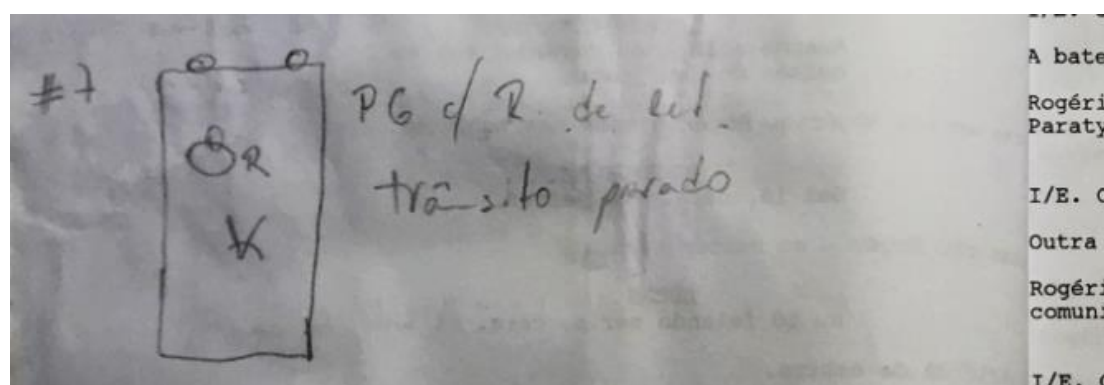 #7
R
PG c/ R. de ref.
trânsito parado
A bate
Rogéri
Paraty
I/E. C
Outra
Rogéri
comuni
I/E. C